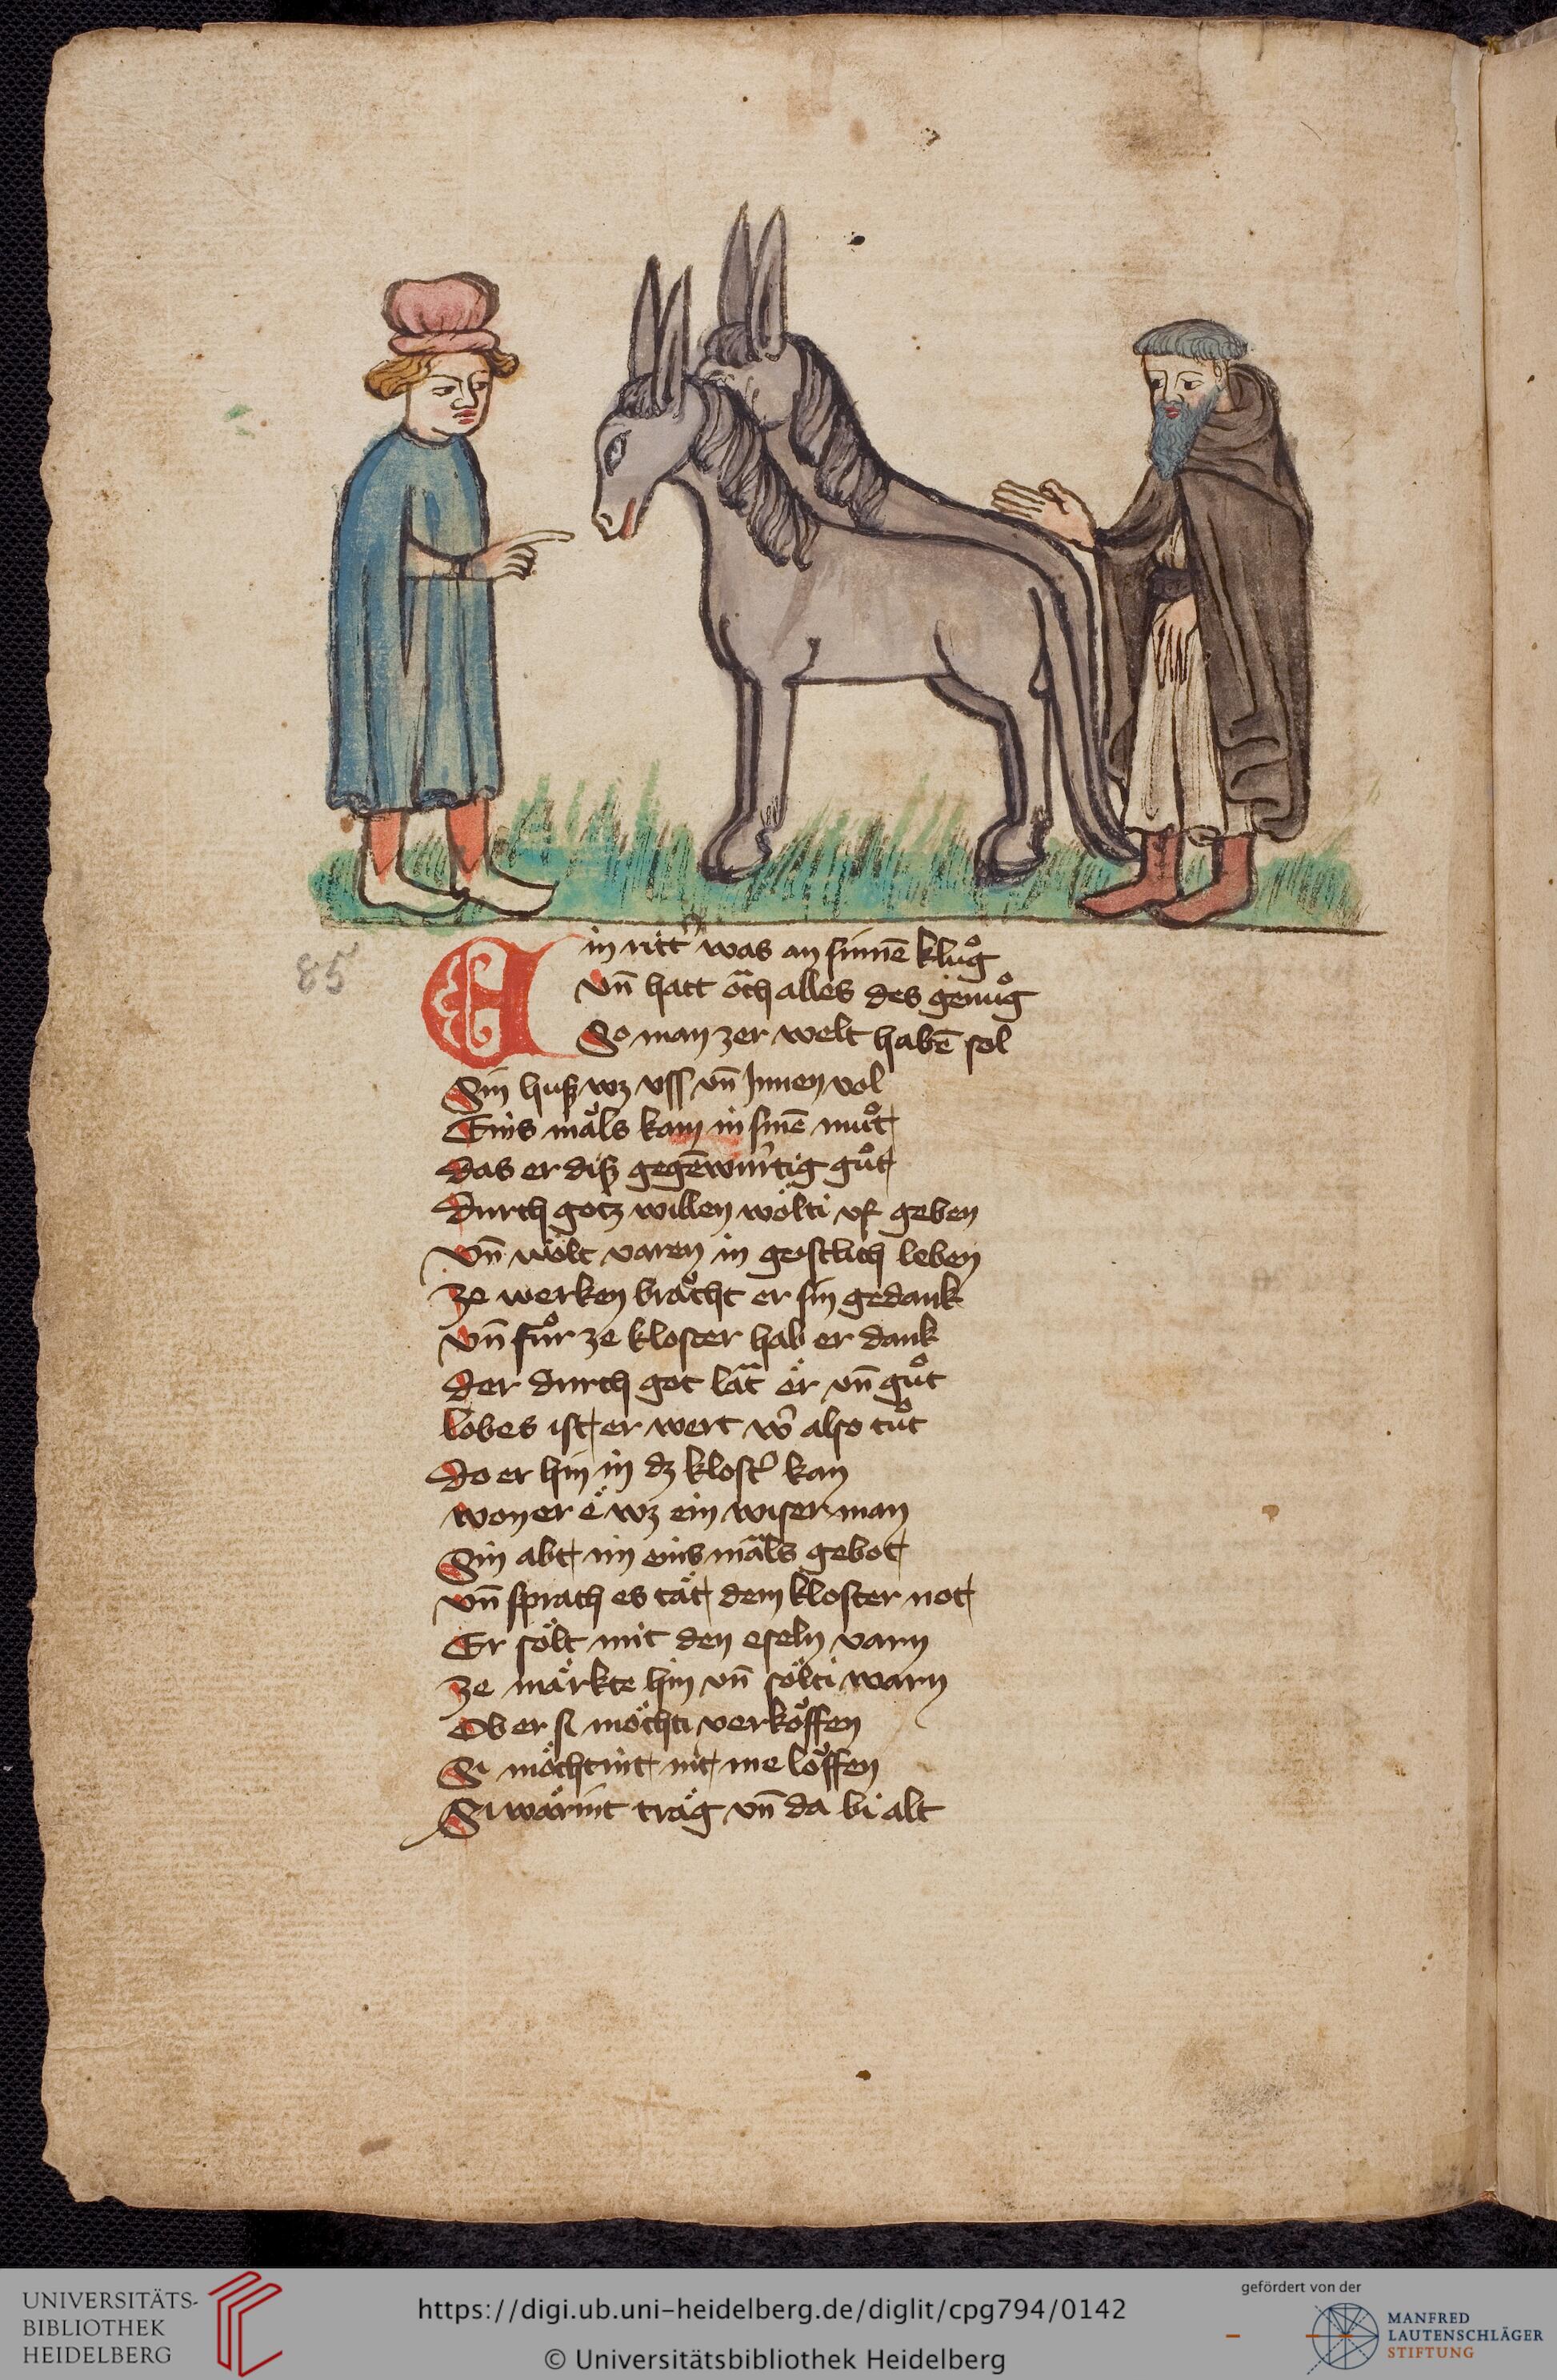 85
Ein ritt͛ was an sinnē kluͦg
vn̄ hatt oͤch alles des genuͦg
So man zer welt habē sol
Sin huß wz vss vn̄ Innen vol
Eins maͤls kam in sinē muͦt
das er diß gegēwürtig guͦt
durch gotz willen woͤlti uf geben
vn̄ woͤlt varen in geistlich leben
ze werken braͤcht er sin gedank
vn̄ fuͦr ze kloster hab er dank
der durch got laͤt eͤr vn̄ guͦt
lobes ist er wert w͛ also tuͦt
do er hin in dz klost͛ kan
won er eͤ wz ein wiser man
Sin abt im eins maͤls gebot
vn̄ sprach es taͤt dem kloster not
Er soͤlt mit den eseln varn
ze maͤrkte hin vn̄ soͤlti warn
Ob er si moͤchti verkoͤffen
Si moͤchtint nit me loͤffen
Si waͤrint traͤg vn̄ da bi alt
UNIVERSITÄTS-
BIBLIOTHEK
HEIDELBERG
https://digi.ub.uni-heidelberg.de/diglit/cpg794/0142
© Universitätsbibliothek Heidelberg
gefördert von der
MANFRED
LAUTENSCHLÄGER
STIFTUNG